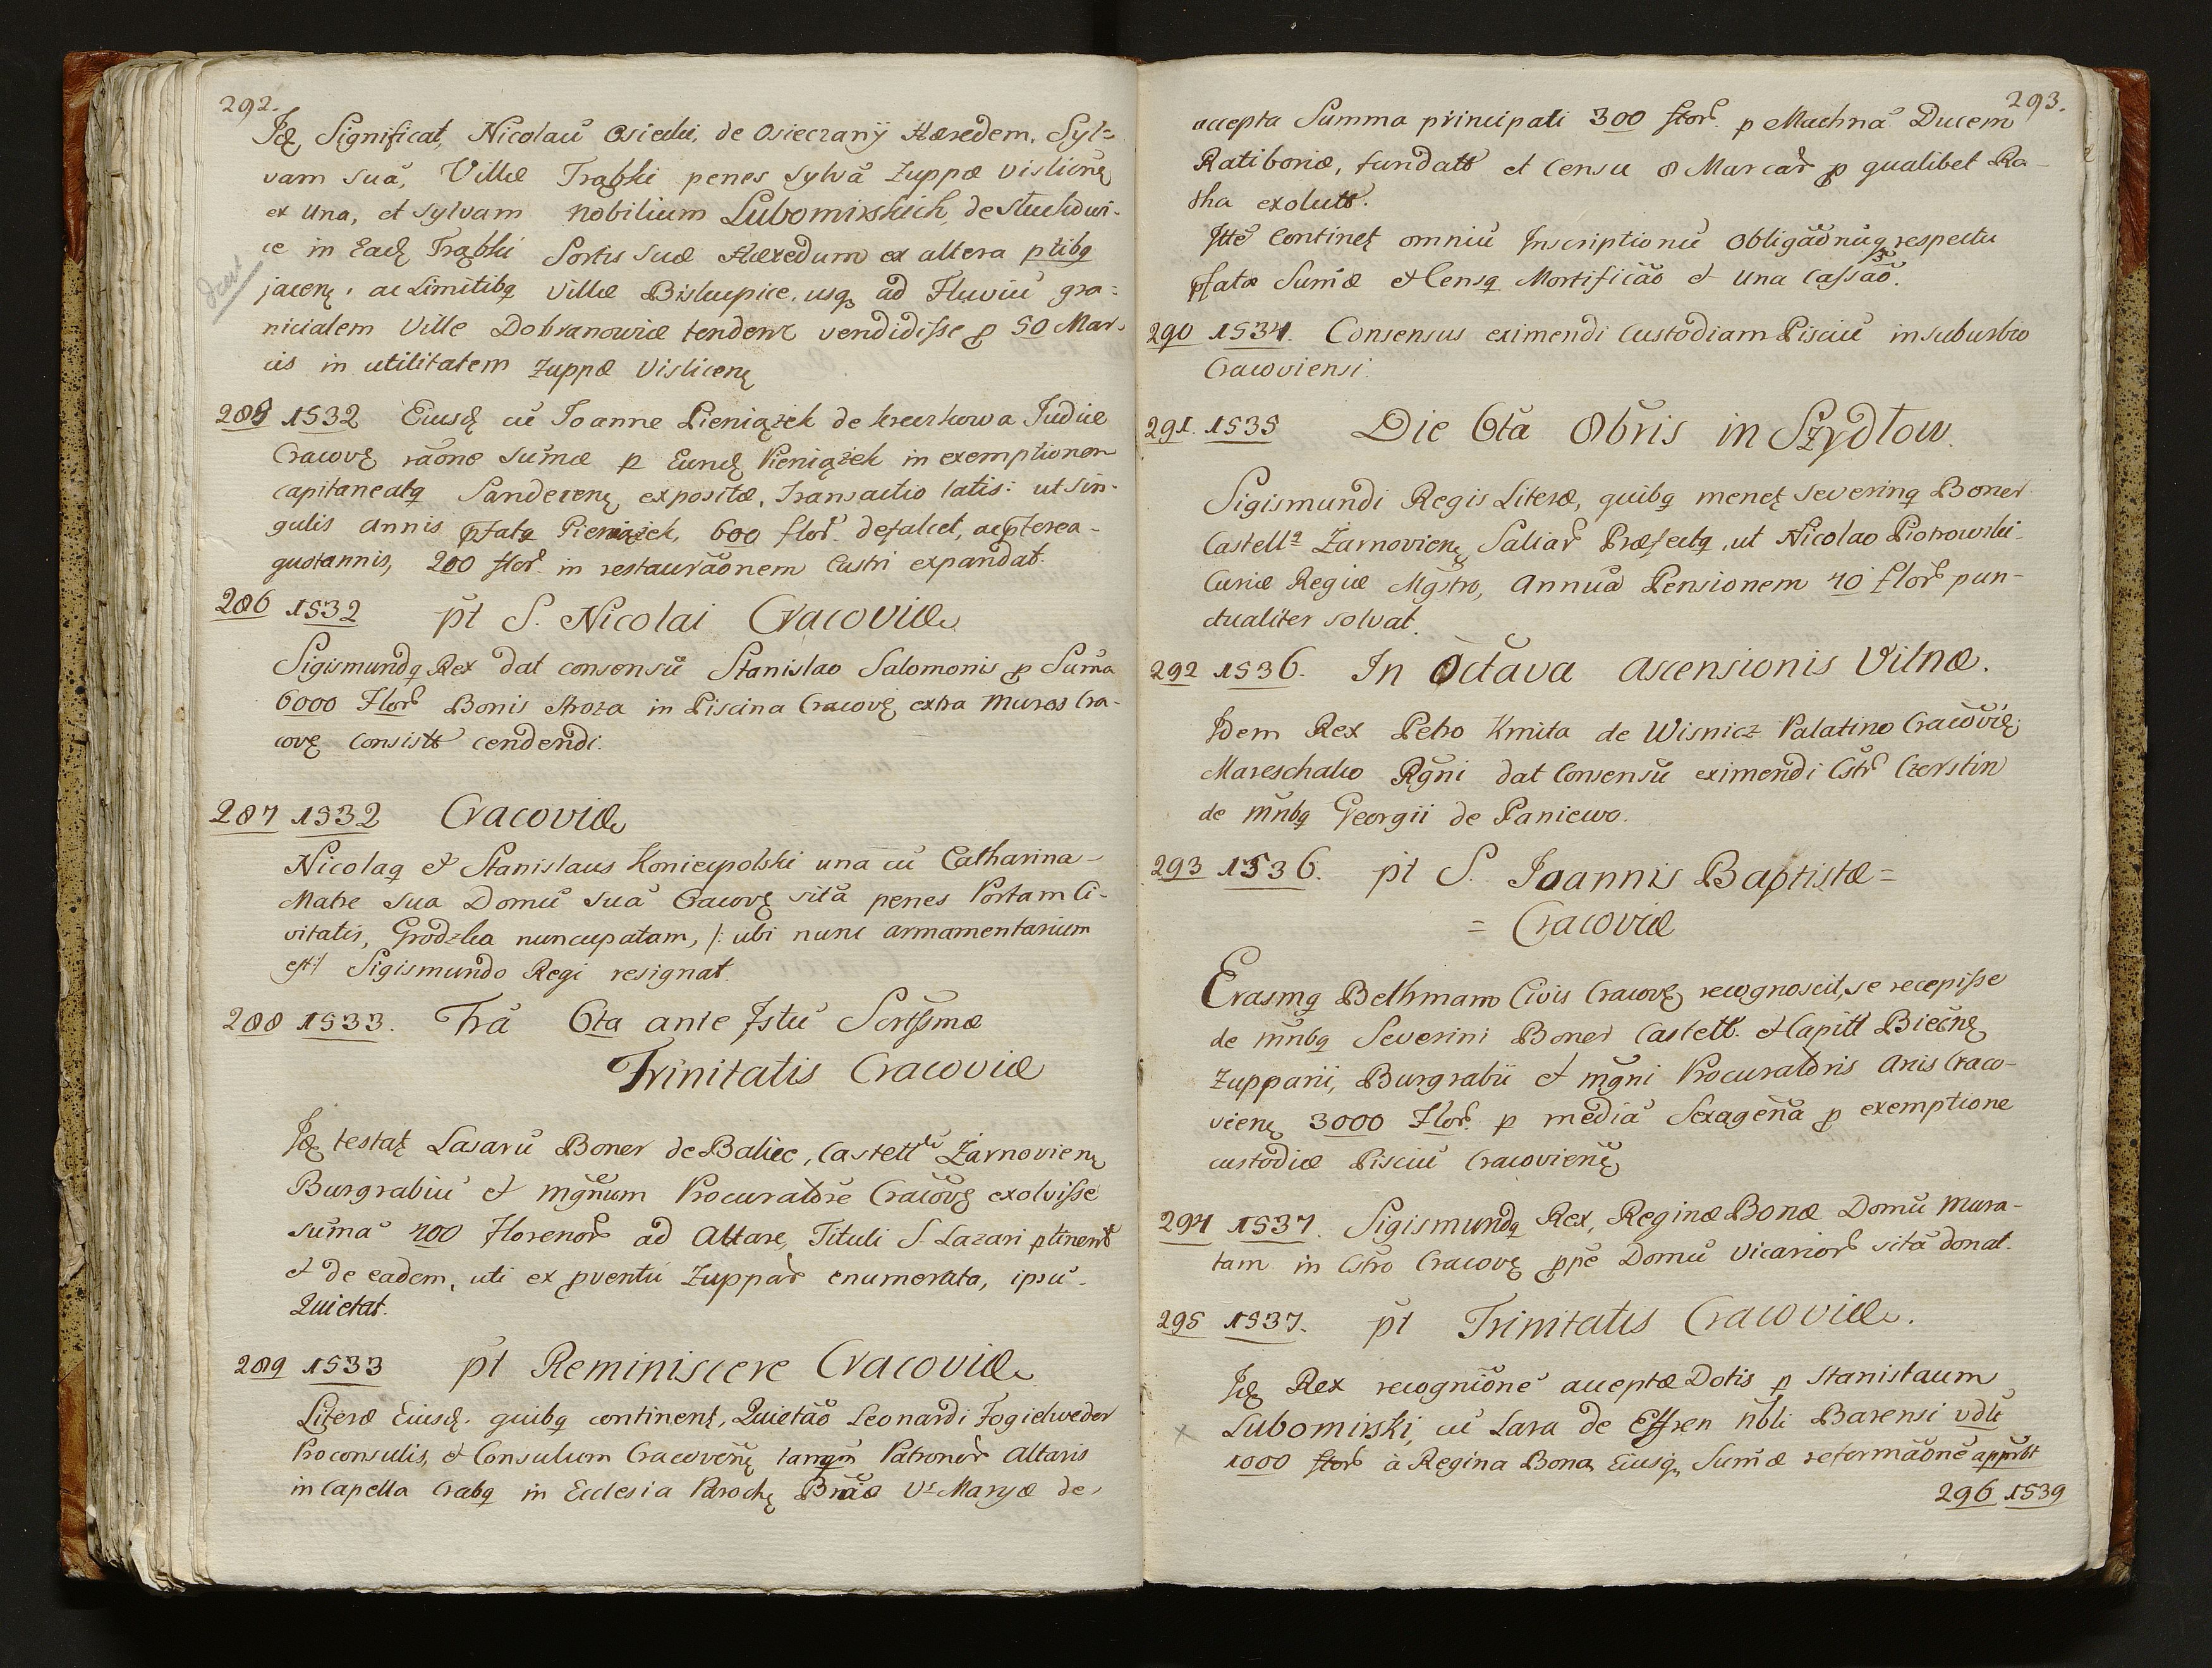 292.
Idę Significat, Nicolaū Osiecki, de Osieczany Hæredem, Syl=
vam suā, Villæ Trąbki penes Sylvā Zuppæ Vislicnę
ex Una, et Sylvam Nobilium Lubomirskich, de Stuchowi-
ce in Eadę Trąbki Sortis suæ Hæredum ex altera ptibq
jacenę, ac Limitibq Villæ Biskupice, usq ad Fluviū gra=
nicialem Ville Dobranowice tendent vendidisse p 50 Mar-
cis in utilitatem Zuppæ Vislicenę
285 1532 Eiusdę cū Joanne Pieniążek de kruzkowa Judice
Cracovę rāone Sumæ p Eundę Pieniążek in exemptionem
capitaneatq Sandecenę expositæ, Transactio talis: ut sin-
gulis annis pfatq Pieniążek, 600 flor. defalcet, ac pterea-
quotannis, 200 flor. in restaurāonem Castri expandat.
286 1532 pt S. Nicolai Cracoviæ
Sigismundq Rex dat consensū Stanislao Salomonis p Suma
6000 Flor. Bonis Stroza in Piscina Cracovę extra muros Cra-
covę Consistt cendendi.
287 1532 Cracoviæ
Nicolaq et Stanislaus Koniecpolski una cū Catharina-
Matre sua Domū suā Cracovę sitā penes Portam Ci-
vitatis, Grodzka nuncupatam, /: ubi nunc armamentarium
est:/ Sigismundo Regi resignat.
288 1533. Frā 6ta ante Fstū Scrtssmæ
Trinitatis Cracoviæ
Idę testatę Lasarū Boner de Balice, Castellū Żarnovienę
Burgrabiū et mgnum Procuratore Cracovę exolvisse
sumā 400 Florenor. ad Altare, Tituli S. Lazari ptinent
et de eadem, uti ex pventū Zuppar. enumerata, ipsū-
Quietat.
289 1533 pt Reminiscere Cracoviæ
Literæ Eiusdę, quibq continent, Quietāo Leonardi Fogielweder
Proconsulis, et Consulum Cracovenę tanqm Patronor. Altaris
in Capella Crabq in Ecclesia Parochę Bnāæ Vs Maryæ de,
293.
accepta Summa principali 300 flor. p Machnā Ducem
Ratiboriæ, fundatt et Censu 8 Marcar. p qualibet Ra-
tha exolutt.
Itte Continet omniū Inscriptionū Obligāonūq respectu
pfatæ Sumæ et Censq Mortificāo et Una Cassāo.
290 1534. Consensus eximendi Custodiam Pisciū in suburbio
Cracoviensi.
291. 1535 Die 6tā 8bris in Szydłow.
Sigismundi Regis Literæ, quibq menet Severinq Boner
Castella Żarnovienę Saliar. Præfectq, ut Nicolao Piotrowski-
Curiæ Regiæ Mgstro, Annuā Pensionem 40 flor. pun-
ctualiter solvat.
292 1536. In Octava Ascensionis Vilnæ.
Idem Rex Petro Kmita de Wisnicz Palatino Cracovię
Mareschalco Rgni dat Consensū eximendi Cstr. Czorstin
de mnbq Georgii de Paniewo.
293 1536. pt S. Joannis Baptistæ=
= Cracoviæ
Erasmq Bethmam Civis Cracovę recognoscit, se recepisse
de mnbq Severini Boner Castell. et Capitt Biecnę
Zupparii, Burgrabii et mgni Procuratoris Arcis Craco-
vienę 3000 Flor. p mediā Sexagenā p exemptione
custodiæ Pisciū Cracovienę
294 1537. Sigismundq Rex, Reginæ Bonæ Domū Mura-
tam in Cstro Cracovę ppe Domū Vicarior. sitā donat.
295 1537. pt Trinitatis Cracoviæ.
Idę Rex recognione acceptæ Dotis p Stanislaum
Lubomirski, cū Lara de Effren Nbli Barensi vdlt
1000 flor. à Regina Bona, Eiusq Sumæ reformāone appbt
296 1539